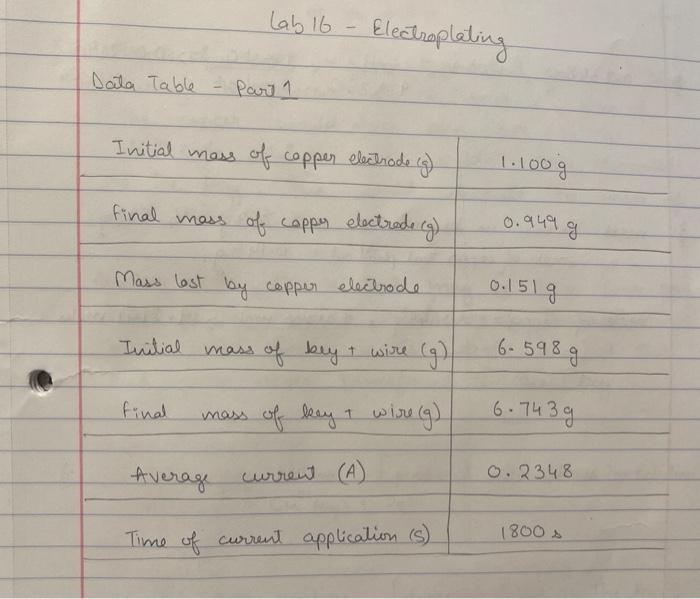 Lab 16 - Electroplating
Data Table - Part 1
Initial mass of copper electrode (g) 1.100 g
Final mass of copper electrode (g) 0.949 g
Mass lost by copper electrode 0.151 g
Initial mass of key + wire (g) 6.598 g
Final mass of key + wire (g) 6.743 g
Average current (A) 0.2348
Time of current application (s) 1800 s